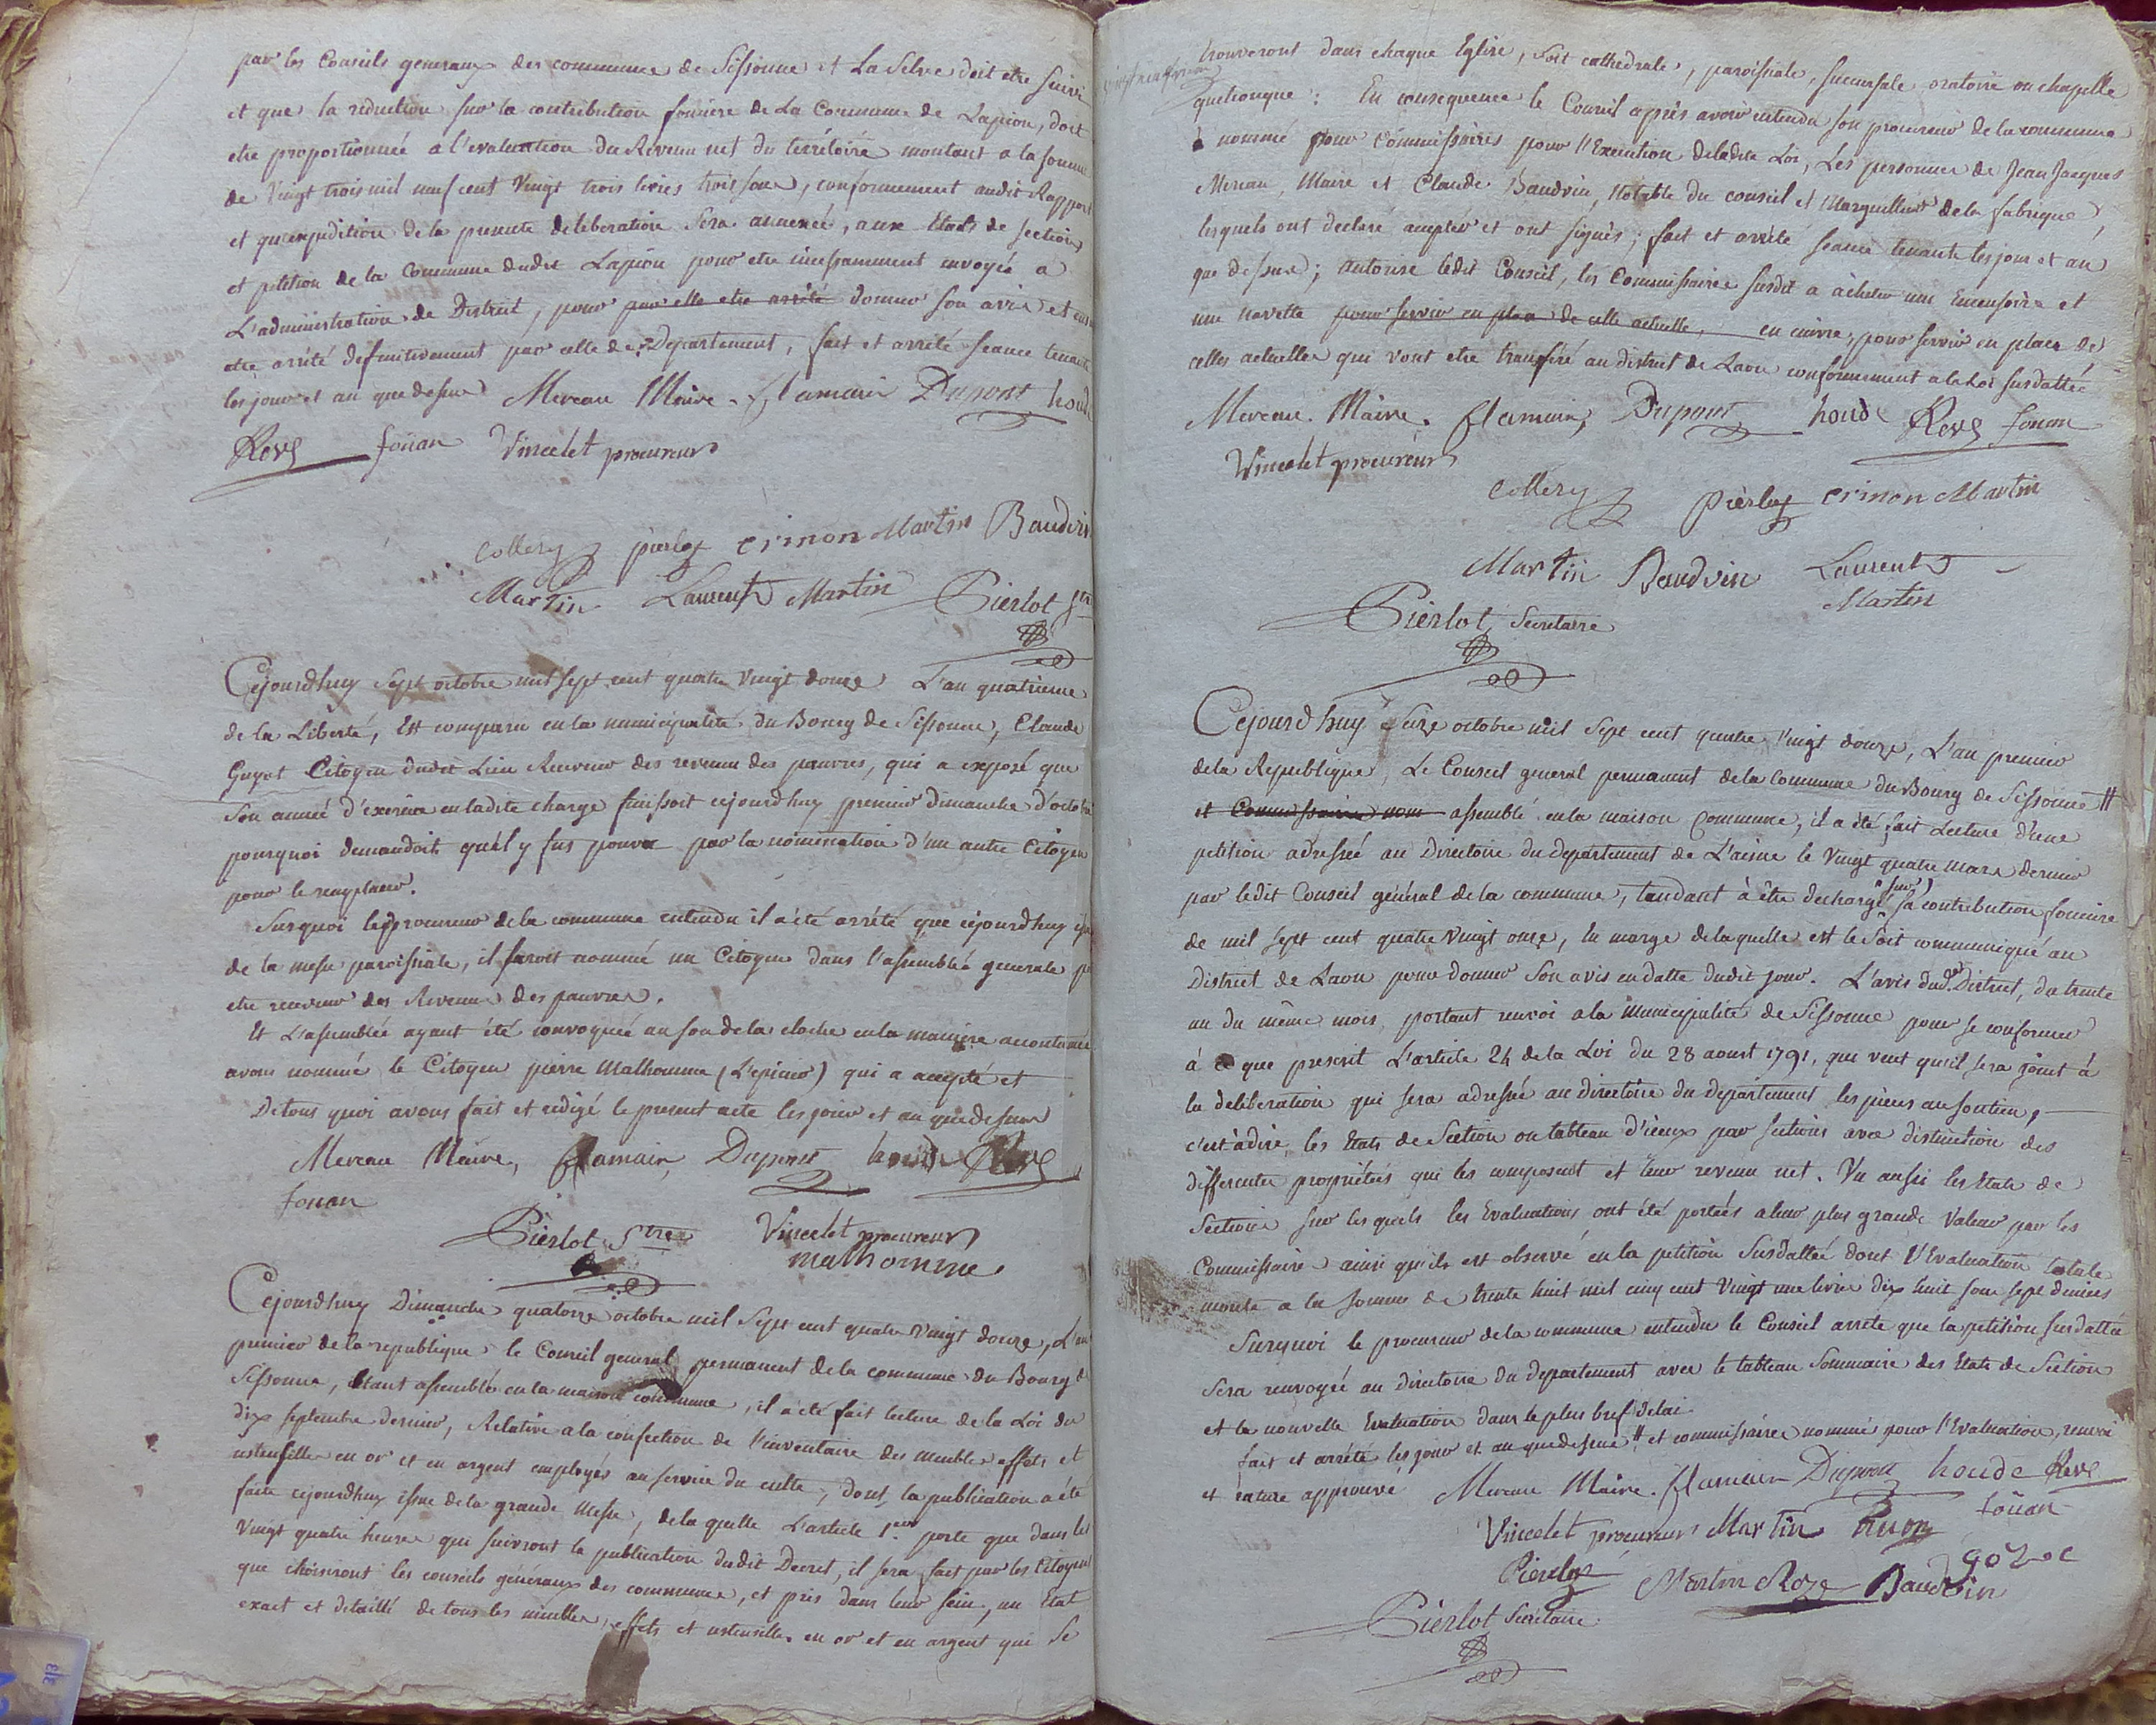 par les Conseils generaux des commune de Sissonne et La Selve doit etre suivi
et que la réduction sur la contribution fonciere de La Commune de Lapion, doit
etre proportionnée a l'evaluation du Revenu net du térritoire montant a la somme
de Vingt trois mil neuf cent Vingt trois livres trois sous, conformement audit Rapport
et qu'expedition de la presente deliberation Sera annexée, aux Etats de section
et petition de la Commune dudit Lapion pour etre incessamment envoyée a
L'administration de District, pour par elle etre arrêté donner son avis et ens
etre arrété definitivement par celle de Departement, fait et arrété seance tenante
les jour et an que dessus Mereau Maire. flamain Dupont houde
Reve foüan Vincelet procureur
Collery pierlot crinon Martin Baudvin
Martin Laurent Martin Pierlot Stre
Cejourdhuy Sept octobre mil sept cent quatre Vingt douze L'an quatrieme
de la Liberté, Est comparu en la municipalité du Bourg de Sissonne, Claude
Guyot Citoyen dudit Lieu Receveur des revenu des pauvres, qui a exposé que
Son année d'exercice en ladite charge finissoit cejourdhuy premier Dimanche d'octobre
pourquoi demandoit qu'il y fus pourvu par la nomination d'un autre Citoyen
pour le remplacer.
Surquoi le procureur de la commune entendu il a été arrété que cejourdhuy issu
de la messe paroissiale, il seroit nommé un Citoyen dans l'assemblée generale po
etre receveur des Revenu des pauvres.
Et L'assemblée ayant été convoquée au son de la cloche en la maniere accoutumée
avons nommé le Citoyen pierre Malhomme (L'epicier) qui a accepté et
De tous quoi avons fait et redigé le present acte les jour et an que dessus
Mereau Maire, flamain Dupont houde Reve
fouan
Pierlot Stre Vincelet procureur
malhomme
Cejourdhuy Dimanche quatorze octobre mil Sept cent quatre Vingt douze, L'an
premier de la republique le Conseil general permanent de la commune du Bourg de
Sissonne, Etant assemblé en la maison commune, il a été fait lecture de la Loi du
dix septembre dernier, Relative a la confection de l'inventaire des meubles effets et
ustensilles en or et en argent employés au service du culte, dont la publication a été
faite cejourdhuy issue de la grande Messe, de la quelle L'article 1er porte que dans les
Vingt quatre heures qui suivront la publication dudit Decret, il sera fait par les Citoyens
que choisiront les conseils généraux des communes, et pris dans leur sein, un Etat
exact et detaillé de tous les meubles, effets et ustensilles en or et en argent qui se
trouveront dans chaque Eglise, Soit cathedrale, paroissiale, succursale oratoire ou chapelle
quelconque : En consequence le Conseil après avoir entendu son procureur de la commune
à nommé pour Commissaires pour l'Execution de ladite Loi, Les personnes de Jean Jacques
Mereau, Maire et Claude Baudvin, Notable du conseil et Marguillier de la fabrique,
lesquels ont declaré accepter et ont signés; fait et arrété seance tenante les jour et an
que dessus; autorise ledit Conseil, les Commissaires susdit a acheter un Encensoire et
une navette pour servir en place de celle actuelle, en cuivre, pour servir en place de
celles actuelles qui vont etre transferé au district de Laon conformement a la Loi susdattée
Mereau. Maire. flamain, Dupont houde Reve fouan
Vincelet procureur
Collery pierlot crinon Martin
Martin Baudvin Laurent
Martin
Pierlot Secretaire
Cejourdhuy Seize octobre mil Sept cent quatre Vingt douze, L'an premier
de la Republique, Le Conseil general permanent de la Commune du Bourg de Sissonne #
et Commissaires nom assemblé en la maison Commune, il a été fait Lecture d'une
petition adressée au Directoire du departement de L'aisne le Vingt quatre mars dernier
par ledit Conseil général de la commune, tendant à être dechargé " sur " sa contribution fonciere
de mil sept cent quatre Vingt onze, En marge de laquelle est le Soit communiqué au
District de Laon pour donner Son avis en datte dudit jour. L'avis dud. District, du trente
un du même mois, portant renvoi a la Municipalité de Sissonne pour se conformer
à ce que prescrit L'article 24 de la Loi du 28 aoust 1791, qui veut qu'il sera joint à
la deliberation qui sera adressée au directoire du departement les pieces au soutien,
c'est à dire, les Etats de Section ou tableau d'iceux par sections avec distinction des
differentes propriétés qui les composent et leur revenu net. Vu aussi les Etats de
Sections sur lesquels les Evaluations ont été portées a leur plus grande Valeur par les
Commissaires ainsi qu'il est observé en la petition Susdattée dont l'Evaluation totale
monte a la somme de trente huit mil cinq cent Vingt une livres dix huit sous sept deniers
Surquoi le procureur de la commune entendu le Conseil arrete que la petition susdattée
Sera renvoyée au directoire du departement avec le tableau Sommaire des Etats de Section
et la nouvelle Evaluation dans le plus bref delai.
fait et arrété les jour et an que dessus # et commissaires nommés pour l'Evaluation, renvoi
et rature approuvé Mereau Maire. flamain Dupont houde Reve
Vincelet procureur Martin foüan
Pierlot Martin Roze Baudvin
Pierlot Secretaire